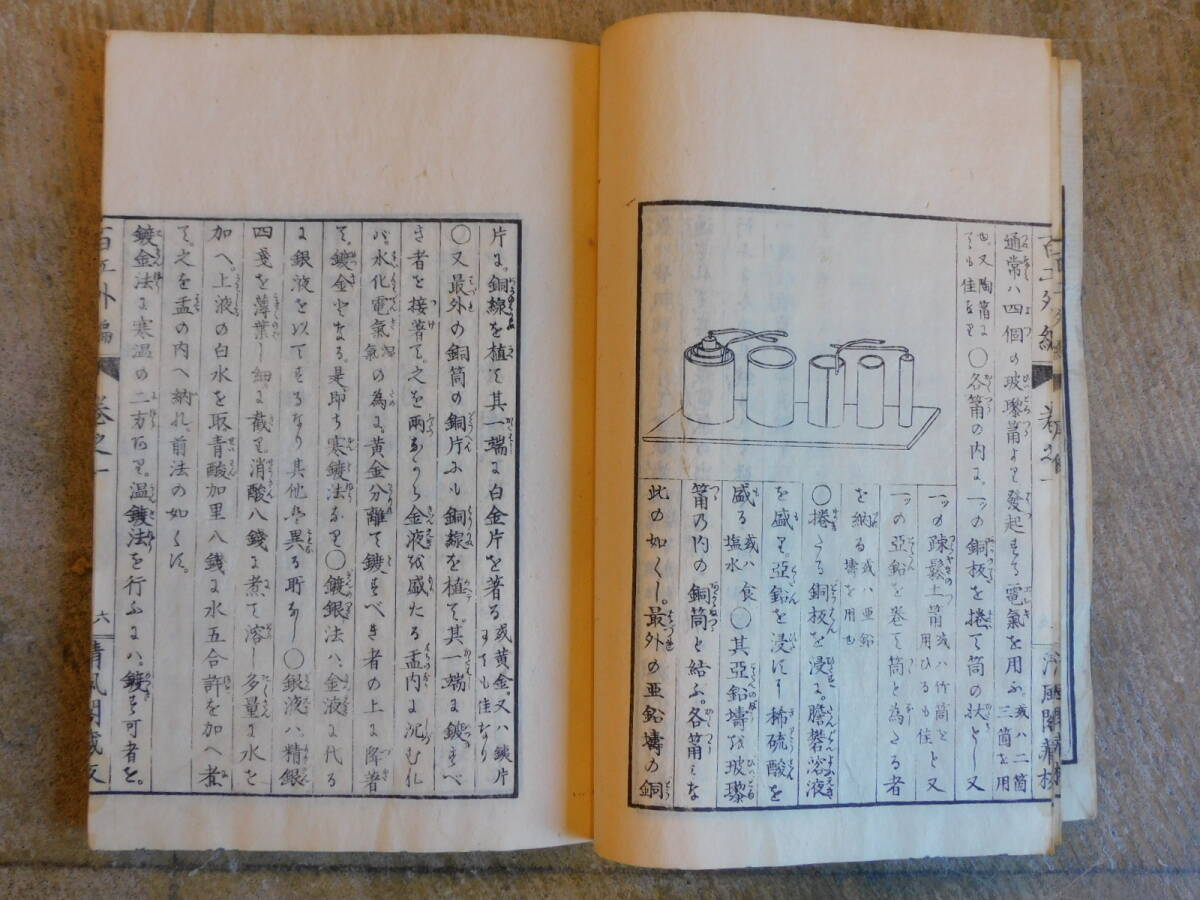 通常ハ四個の玻瓈筩より發起する電氣を用ふ。或ハ二箇三箇を用
も。又陶筩に
ても佳なり 〇各筩の内に。一ッの銅板を捲て筒の状とし又
一ッの疎鬆土筩或ハ竹筒を用ひるも佳 と又
一ッの亞鉛を巻て筒と為たる者
を納る 或ハ亜鉛
壔を用也
〇捲たる銅板を浸に。膽礬溶液
を盛り。亞鉛を浸にハ稀硫酸を
盛る 或ハ食
塩水 〇其亞鉛壔を玻瓈
筩の内の銅筒と結ふ。各筩ミな
此の如くし。最外の亜鉛壔の銅
片に。銅線を植て其一端に白金片を著る 或黄金。又ハ鐵片
すても佳なり
〇又最外の銅筒の銅片ふも銅線を植て。其一端に鍍すべ
き者を接著て。之を兩ながら金液を盛たる盂内に沉む化
バ。水化電氣 の為に。黄金分離て鍍すべき者の上に降著
て。鍍金となる。是即ち寒鍍法なり〇鍍銀法ハ。金液に代る
に銀液を以てするなり其他ハ異る所なし〇銀液ハ。精銀
四錢を薄葉し細に截り。消酸八錢に煮て溶し多量に水を
加へ。上液の白水を取青酸加里八錢に水五合許を加へ煮
て之を盂の内へ納れ。前法の如くす。
鍍金法に寒温の二方あり。温鍍法を行ふにハ。鍍す可者を。
百工外編
卷之一
六
清風閣藏板